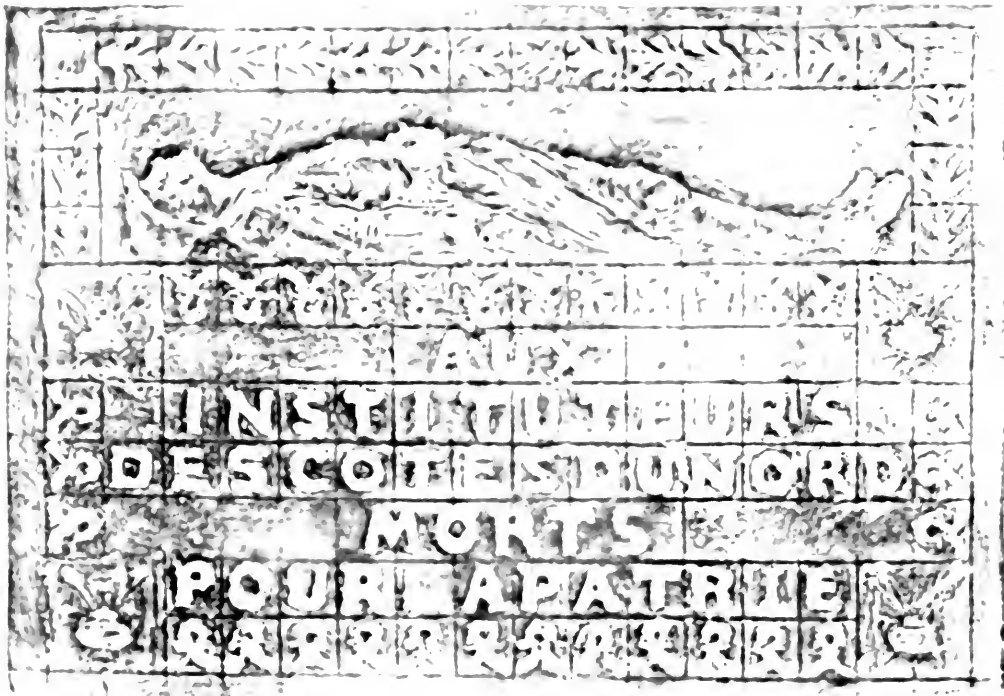 AUX
INSTITUTEURS
DES COTES DU NORD
MORTS
POUR LA PATRIE